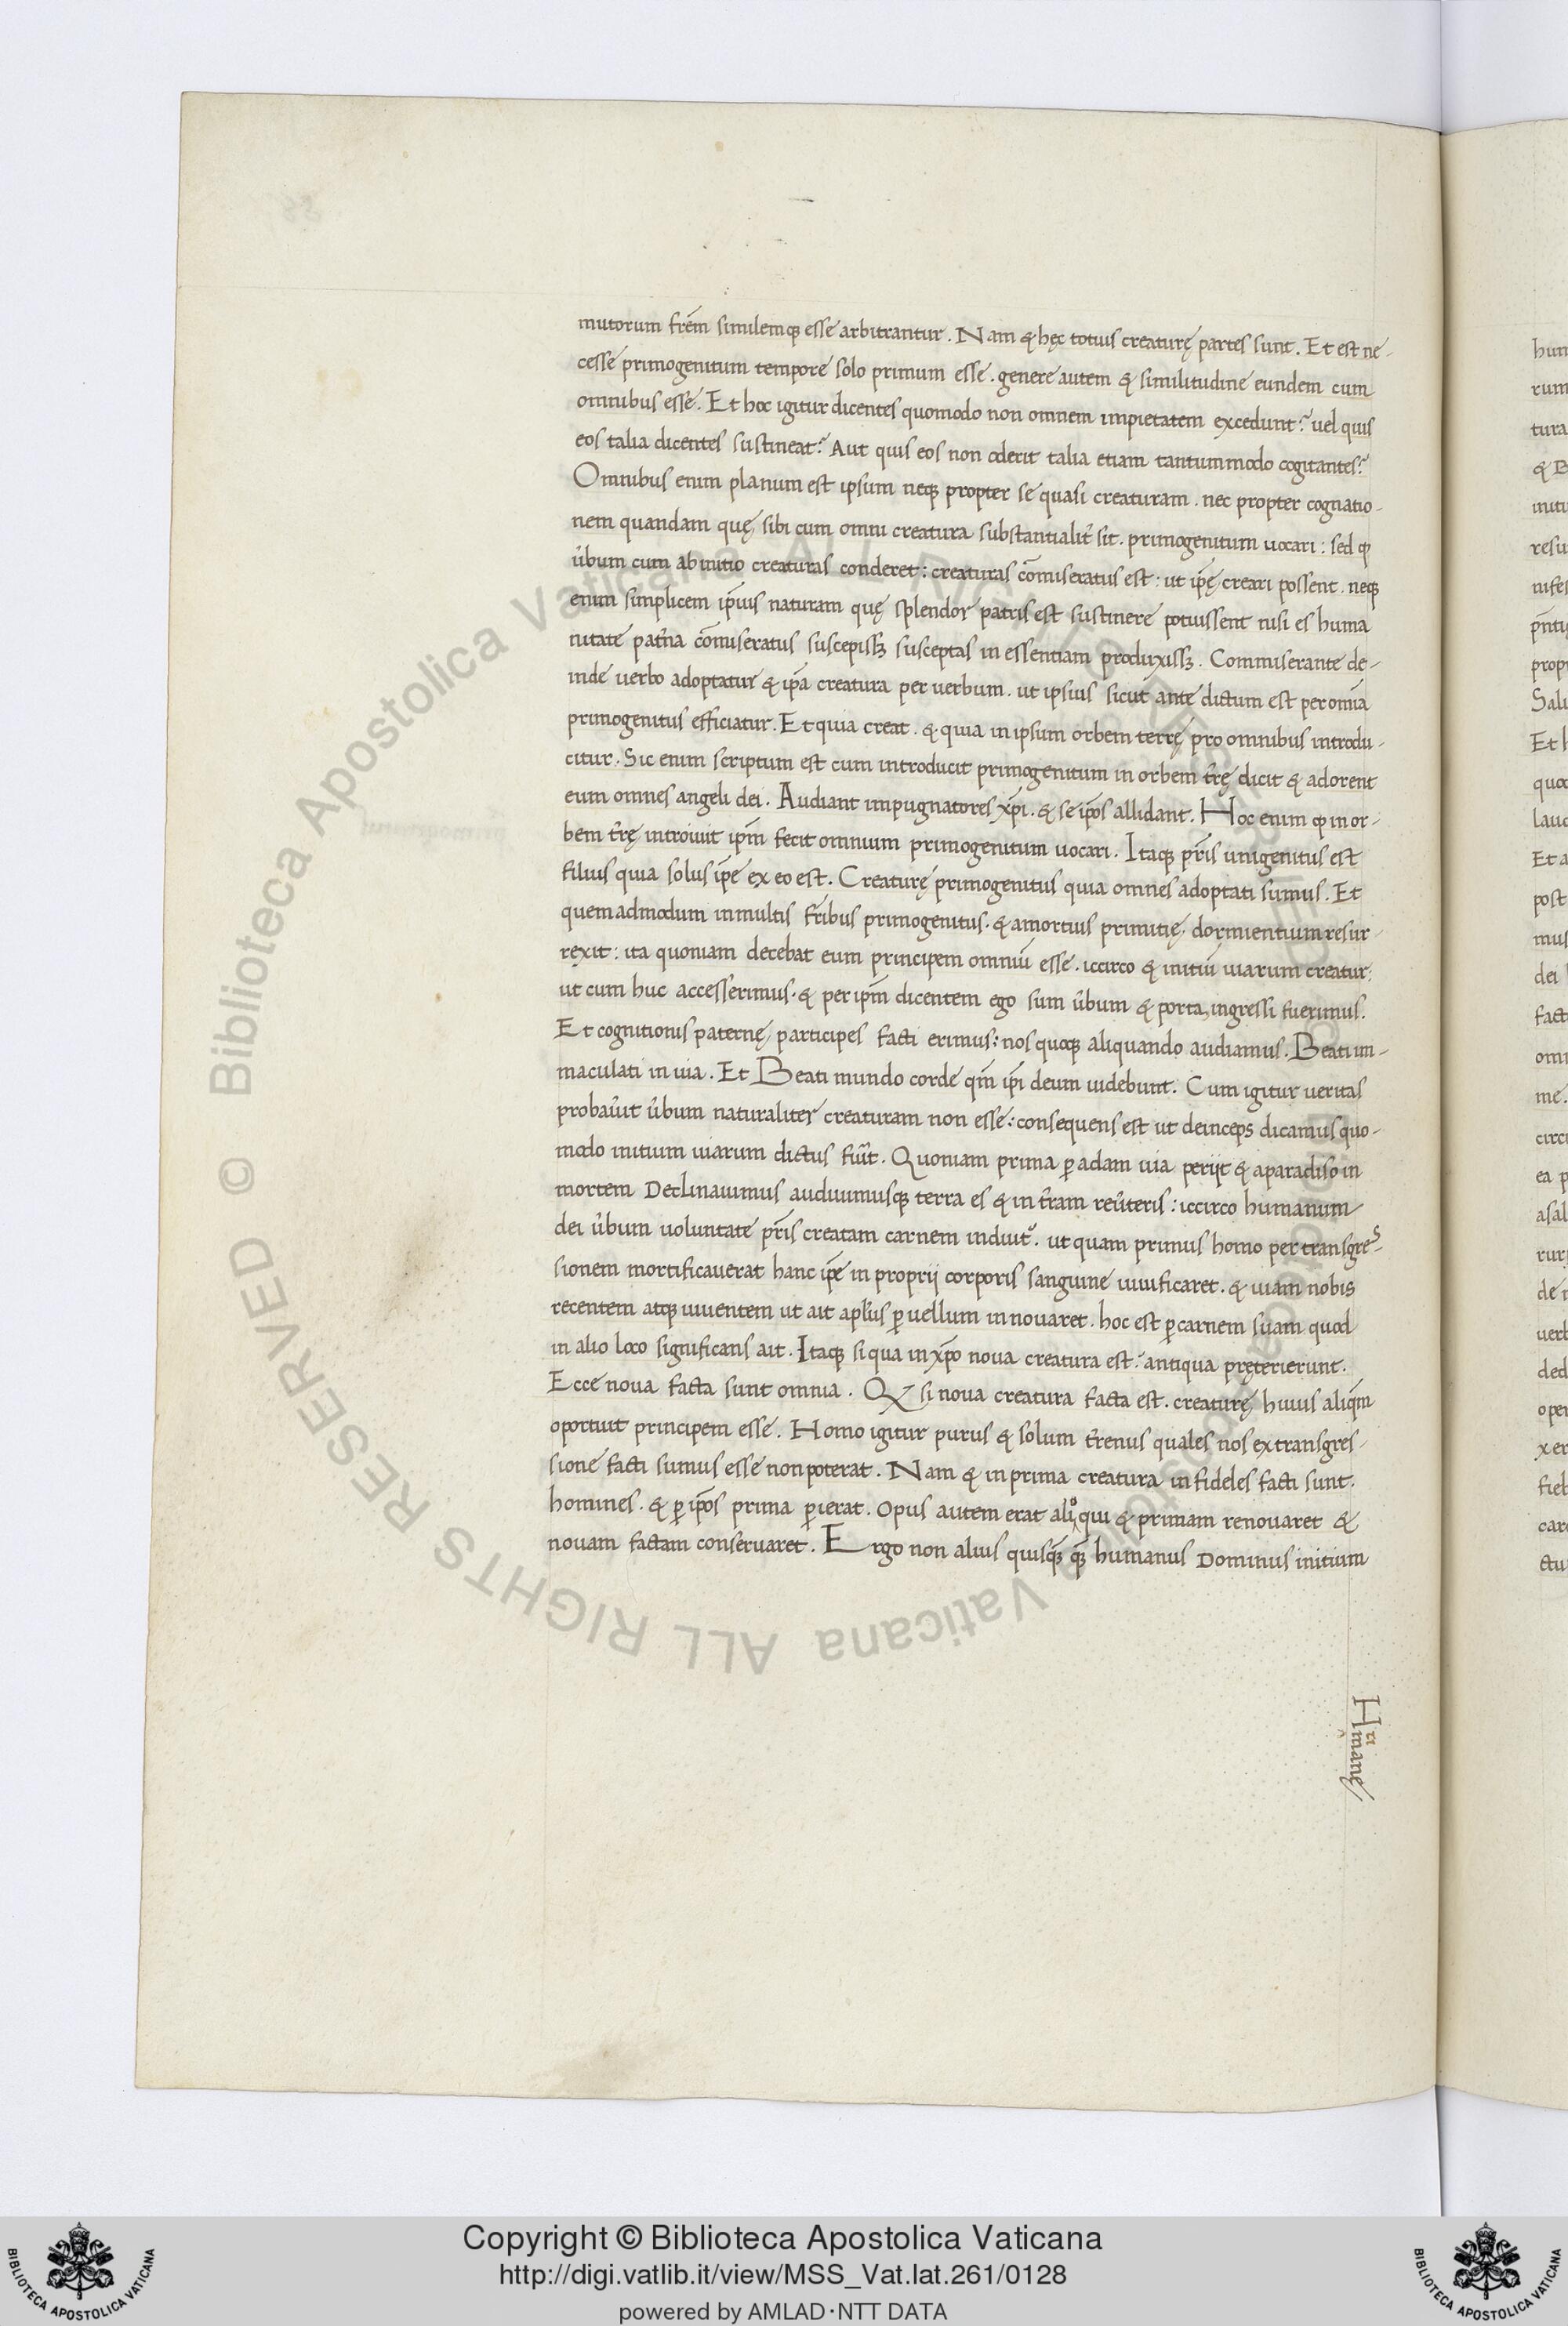 mutorum frēm similemqꝫ esse arbitrantur. Nam & hęc totius creaturę partes sunt. Et est ne-
cesse primogenitum tempore solo primum esse. genere autem & similitudine eundem cum
omnibus esse. Et hoc igitur dicentes quomodo non omnem impietatem excedunt? uel quis
eos talia dicentes sustineat? Aut quis eos non oderit talia etiam tantummodo cogitantes?
Omnibus enim planum est ipsum neqꝫ propter se quasi creaturam. nec propter cognatio-
nem quandam quę sibi cum omni creatura substantialit̄ sit. primogenitum uocari: sed ꝙ
ūbum cum ab initio creaturas conderet: creaturas cōmiseratus est: ut ip̄ę creari possent. neqꝫ
enim simplicem ip̄ius naturam quę splendor patris est sustinere potuissent nisi es huma
nitate pat̄na cōmiseratus suscepissꝫ susceptas in essentiam produxissꝫ. Commiserante de-
inde uerbo adoptatur & ip̄a creatura per uerbum. ut ipsius sicut ante dictum est per om̄ia
primogenitus efficiatur. Et quia creat. & quia in ipsum orbem terrę pro omnibus introdu-
citur. Sic enim scriptum est cum introducit primogenitum in orbem t̄rę dicit & adorent
eum omnes angeli dei. Audiant impugnatores xp̄i. & se ip̄os allidant. Hoc enim ꝙ in or-
bem t̄rę introiuit ip̄m fecit omnium primogenitum uocari. Itaqꝫ pr̄is unigenitus est
filius quia solus ip̄e ex eo est. Creaturę primogenitus quia omnes adoptati sumus. Et
quemadmodum in multis fr̄ibus primogenitus. & a mortuis primitię dormientium resur-
rexit: ita quoniam decebat eum principem omniū esse. iccirco & initiū uiarum creatur:
ut cum huc accesserimus. & per ip̄m dicentem ego sum ūbum & porta, ingressi fuerimus.
Et cognitionis paternę participes facti erimus: nos quoqꝫ aliquando audiamus. Beati im-
maculati in uia. Et Beati mundo corde qm̄ ip̄i deum uidebunt. Cum igitur ueritas
probau̅it ūbum naturaliter creaturam non esse: consequens est ut deinceps dicamus quo-
modo initium uiarum dictus fuīt. Quoniam prima ꝑ adam uia perijt & a paradiso in
mortem Declinauimus audiuimusqꝫ terra es & in t̄ram reūteris: iccirco humanum
dei ūbum uoluntate pr̄is creatam carnem induit. ut quam primus homo per transgres-
sionem mortificauerat hanc ip̄e in proprij corporis sanguine uiuificaret. & uiam nobis
recentem atqꝫ uiuentem ut ait apl̄us ꝑ uellum innouaret. hoc est ꝑ carnem suam quod
in alio loco significans ait. Itaqꝫ si qua in xp̄o noua creatura est: antiqua pręterierunt.
Ecce noua facta sunt omnia. Qꝫ si noua creatura facta est. creaturę huius aliqm̄
oportuit principem esse. Homo igitur purus & solum t̄renus quales nos ex transgres-
sione facti sumus esse non poterat. Nam & in prima creatura infideles facti sunt.
homines. & ꝑ ip̄os prima ꝑierat. Opus autem erat alio qui & primam renouaret &
nouam factam conseruaret. Ergo non alius quisqꝫ̄ qꝫ̄ humanus Dominus initium
© Biblioteca Apostolica Vaticana ALL RIGHTS RESERVED
© Biblioteca Apostolica Vaticana ALL RIGHTS RESERVED
Copyright © Biblioteca Apostolica Vaticana
http://digi.vatlib.it/view/MSS_Vat.lat.261/0128
powered by AMLAD·NTT DATA
BIBLIOTECA APOSTOLICA VATICANA
BIBLIOTECA APOSTOLICA VATICANA